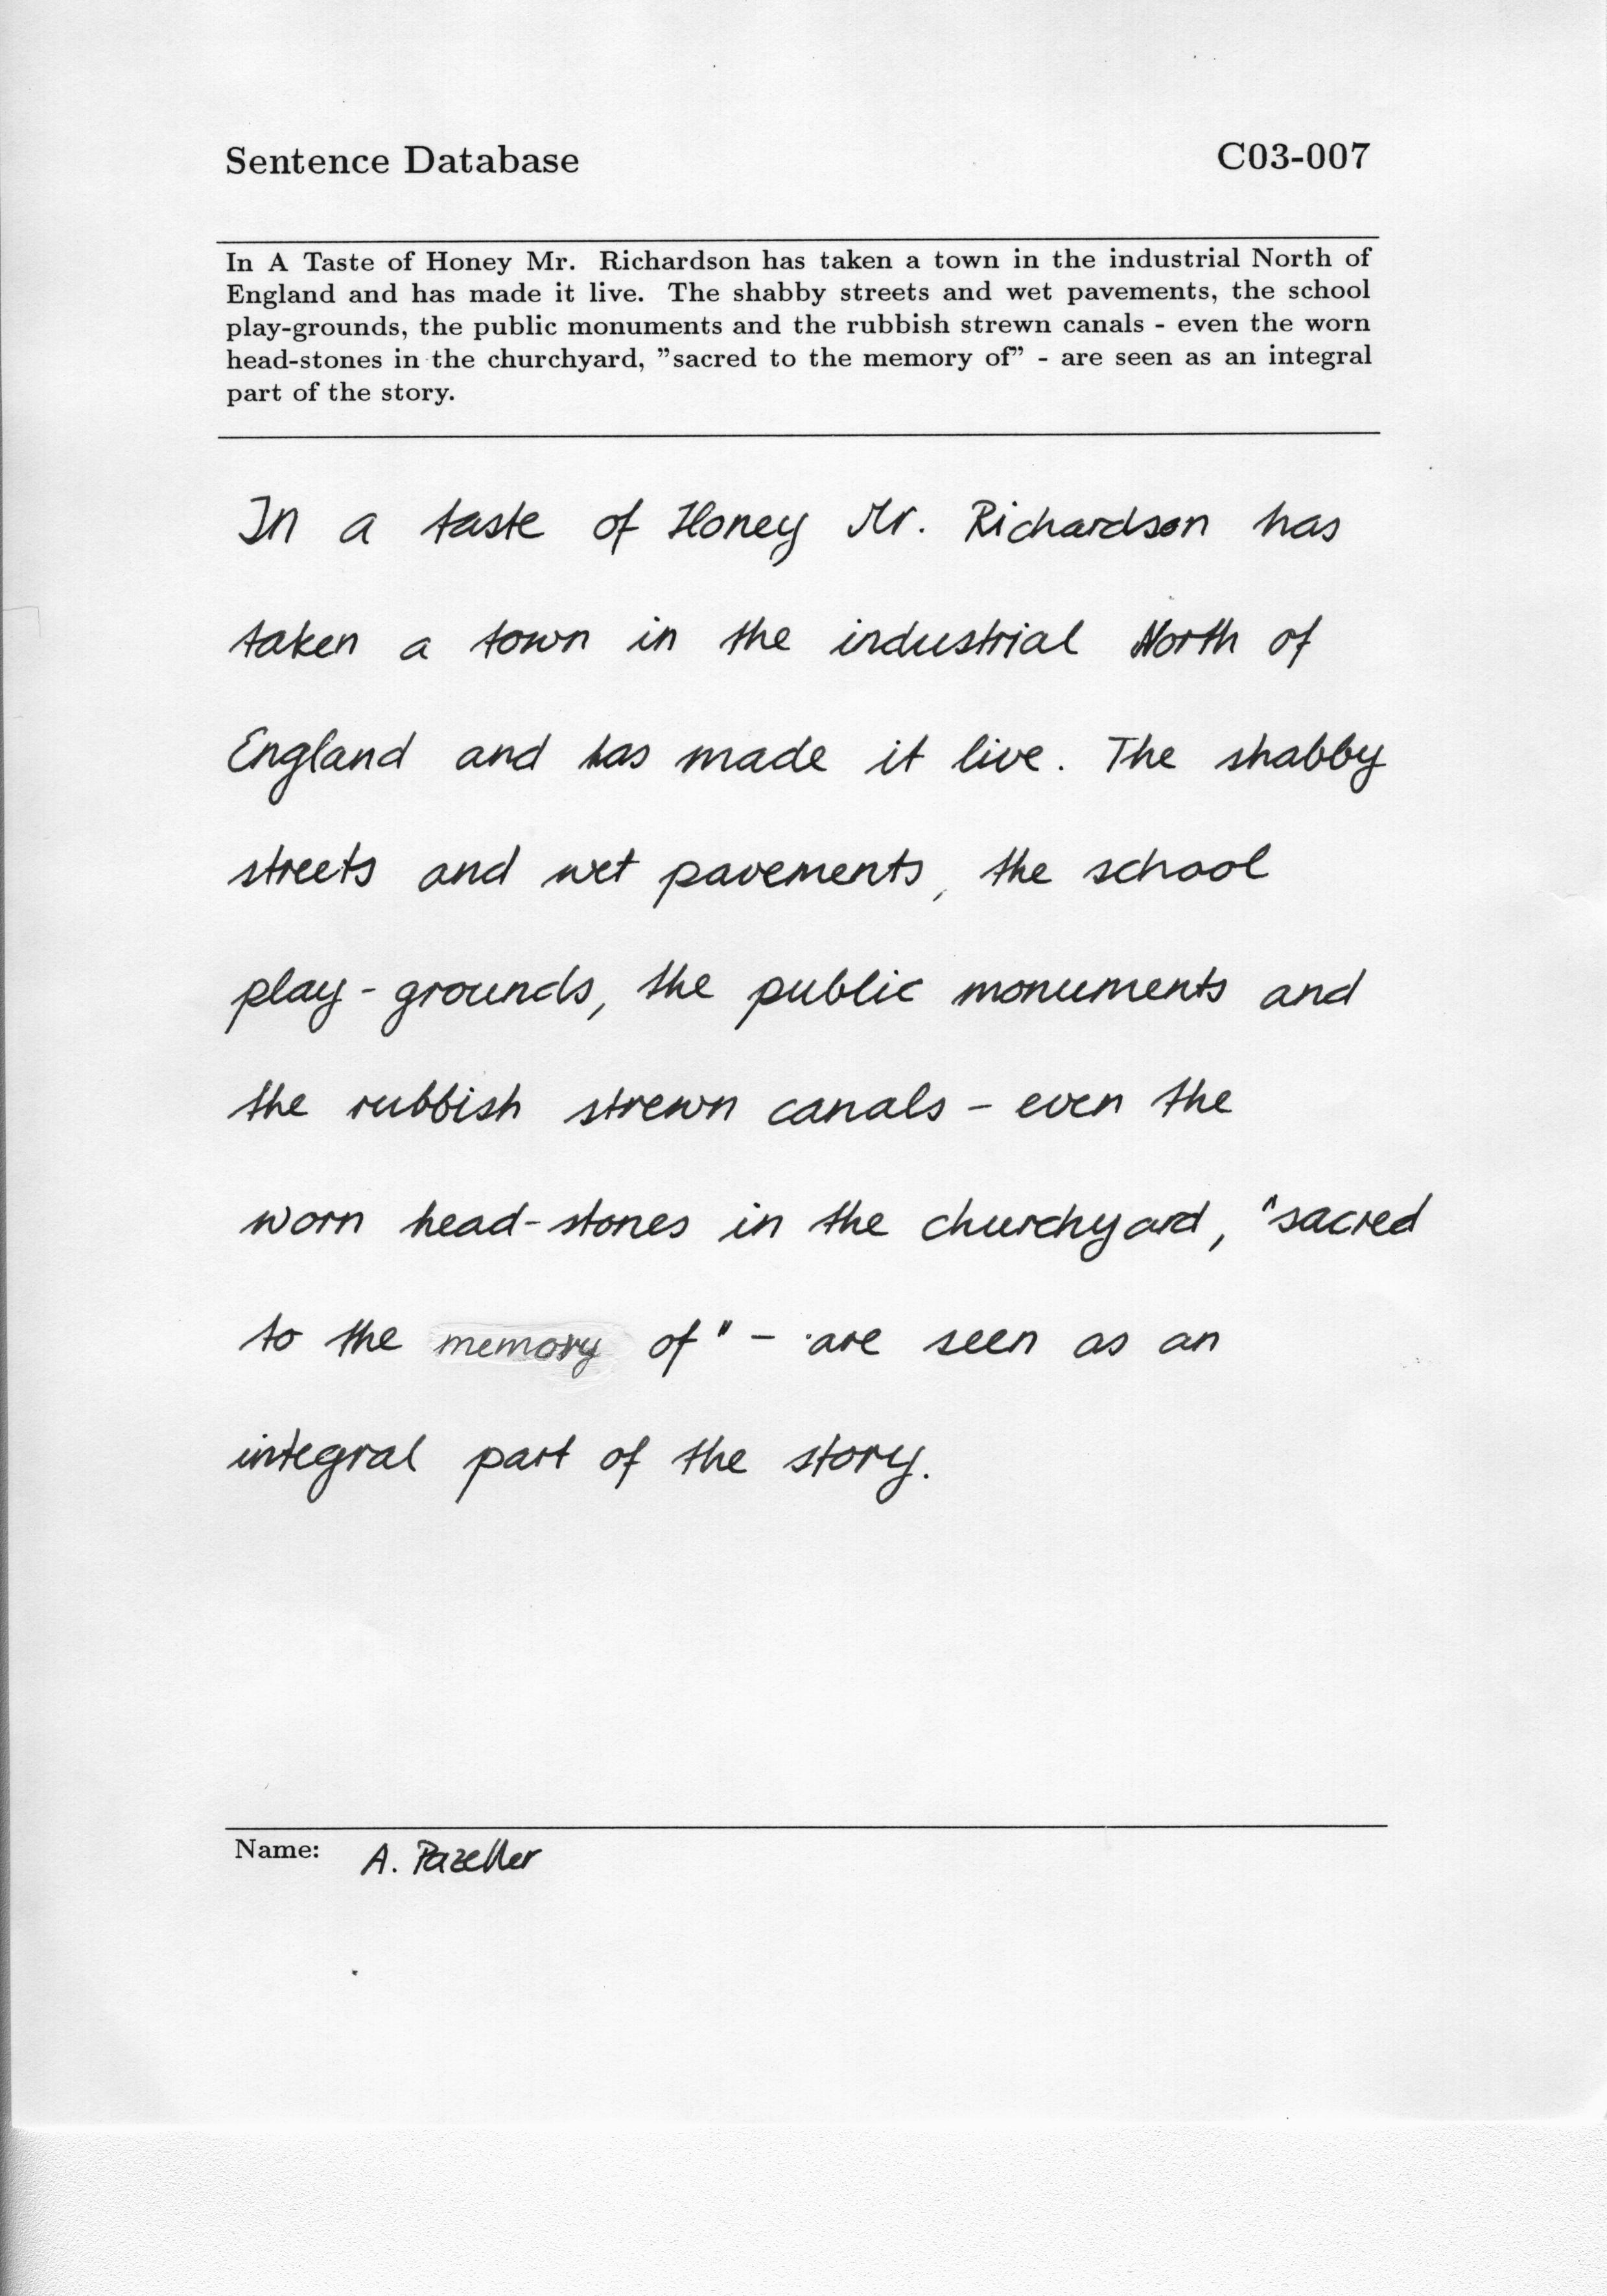 Sentence Database C03-007
In A Taste of Honey Mr. Richardson has taken a town in the industrial North of
England and has made it live. The shabby streets and wet pavements, the school
play-grounds, the public monuments and the rubbish strewn canals - even the worn
head-stones in the churchyard, "sacred to the memory of" - are seen as an integral
part of the story.
In a taste of Honey Mr. Richardson has
taken a town in the industrial North of
England and has made it live. The shabby
streets and wet pavements, the school
play-grounds, the public monuments and
the rubbish strewn canals - even the
worn head-stones in the churchyard, "sacred
to the memory of" - are seen as an
integral part of the story.
Name: A. Pazeller